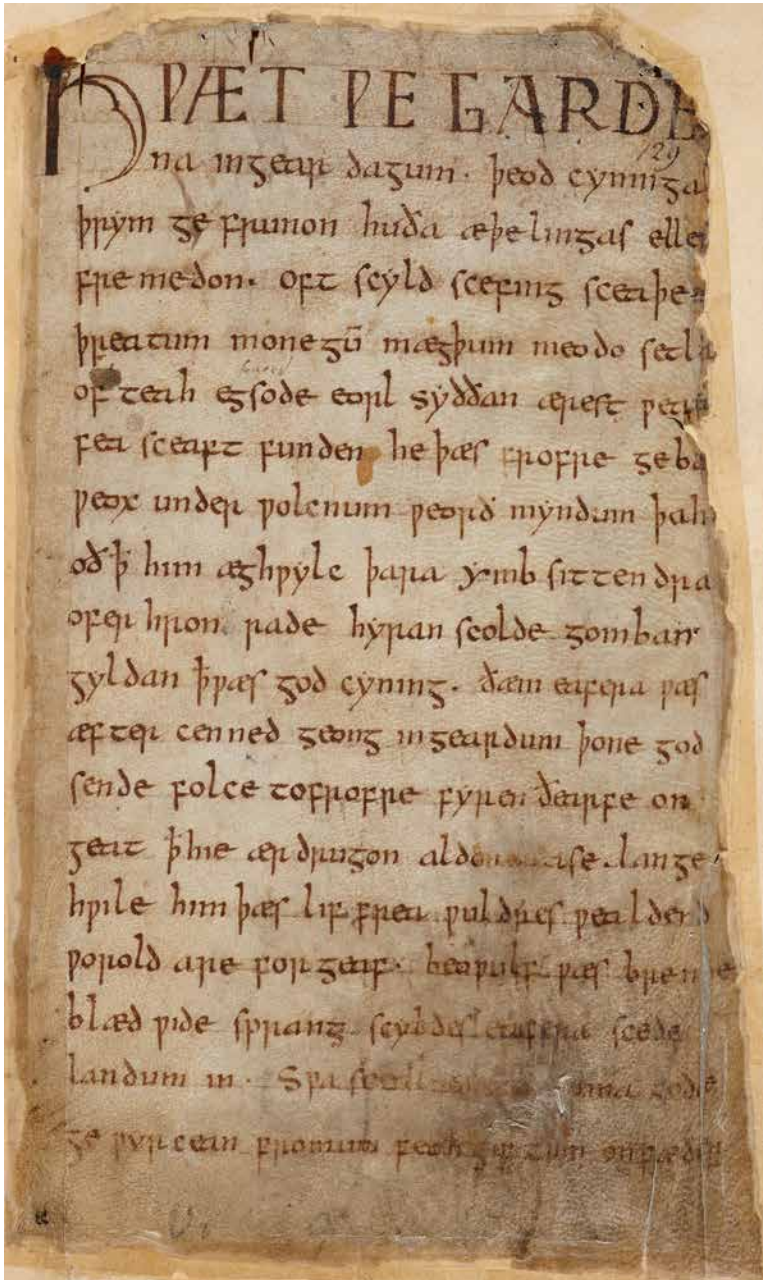 HǷÆT ǷE GARDE
129
na ingear dagum. þeod cyninga
þrym ge frunon huða æþelingas elle
fremedon. oft scyld scefing sceaþe
þreatum monegū mægþum meodo setla
of teah egsode eorl syððan ærest ƿear
fea sceaft funden he þæs frofre geba
ƿeox under ƿolcnum ƿeorð myndum þah
oð ꝥ him æghƿylc þara ymb sittendra
ofer hron rade hyran scolde gomban
gyldan ꝥƿæs god cyning. ðæm eafera ƿæs
æfter cenned geong ingeardum þone god
sende folce tofrofre fyren ðearfe on
geat ꝥhie ær drugon aldor ase. lange
hƿile him þæs lif frea ƿuldres ƿealdend
ƿorold are for geaf. beoƿulf ƿæs breme
blæd ƿide sprang scyldes eafera scede
landum in. Sƿa sceal guma gode
ge ƿyrcean fromum feoh giftum onfæder